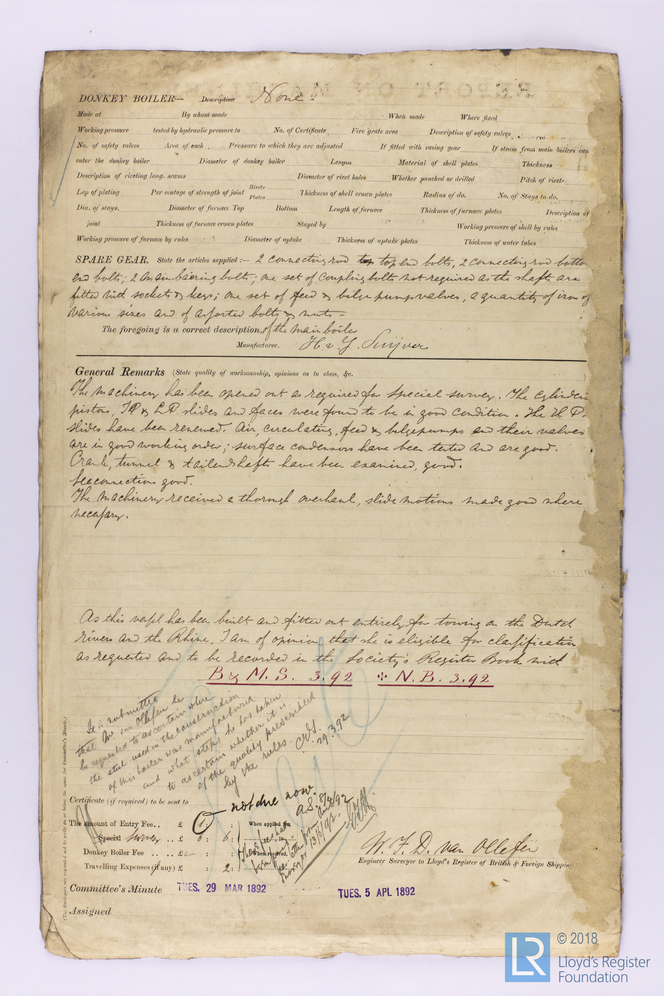 DONKEY BOILER— Description None.
Made at By whom made When made Where fixed
Working pressure tested by hydraulic pressure to No. of Certificate Fire grate area Description of safety valves
No. of safety valves Area of each Pressure to which they are adjusted If fitted with easing gear If steam from main boilers can
enter the donkey boiler Diameter of donkey boiler Length Material of shell plates Thickness
Description of riveting long. seams Diameter of rivet holes Whether punched or drilled Pitch of rivets
Lap of plating Per centage of strength of joint Rivets Plates Thickness of shell crown plates Radius of do. No. of Stays to do.
Dia. of stays. Diameter of furnace Top Bottom Length of furnace Thickness of furnace plates Description of
joint Thickness of furnace crown plates Stayed by Working pressure of shell by rules
Working pressure of furnace by rules Diameter of uptake Thickness of uptake plates Thickness of water tubes
SPARE GEAR. State the articles supplied:— 2 connecting rod top end bolts, 2 connecting rod bottom
end bolts; 2 main bearing bolts; one set of coupling bolts not required as the shaft are
fitted with sockets & keys; one set of feed & bilge pump valves, a quantity of iron of
various sizes and of assorted bolts & nuts—
The foregoing is a correct description, of the main boiler
Manufacturer.
General Remarks (State quality of workmanship, opinions as to class, &c.
The machinery has been opened out as required for special survey. The cylinders
pistons, IP & LP slides and faces were found to be in good condition. The H P.
slides have been renewed. Air, circulating, feed & bilgepumps and their valves
are in good working order; surface condensors have been tested and are good.
Crank, tunnel & tailendshaft have been examined, good.
Seaconnections good.
The machinery received a thorough overhaul, slide motions made good where
necessary.
As this vessel has been built and fitted out entirely for towing on the Dutch
rivers and the Rhine, I am of opinion that she is eligible for classification
as requested and to be recorded in the Society's Register Book with
B & M. S. 3.92 N. B. 3.92
It is submitted
that Mr. van Ollefen be
requested to ascertain where
the steel used in the construction
of this boiler was manufactured
and what steps he has taken
to ascertain whether it is
of the quality prescribed
by the rules.
29.3.92
Certificate (if required) to be sent to
not due now
The amount of Entry Fee.. £ 1 : : When applied for,
Special Survey .. £ 6 : 6 :
Donkey Boiler Fee .. .. £ : : When received,
Travelling Expenses (if any) £ : 2 :
W. F. D. van Ollefen
Engineer Surveyor to Lloyd's Register of British & Foreign Shipping
Committee's Minute TUES. 29 MAR 1892 TUES. 5 APL 1892
Assigned
© 2018
LR Lloyd's Register
Foundation